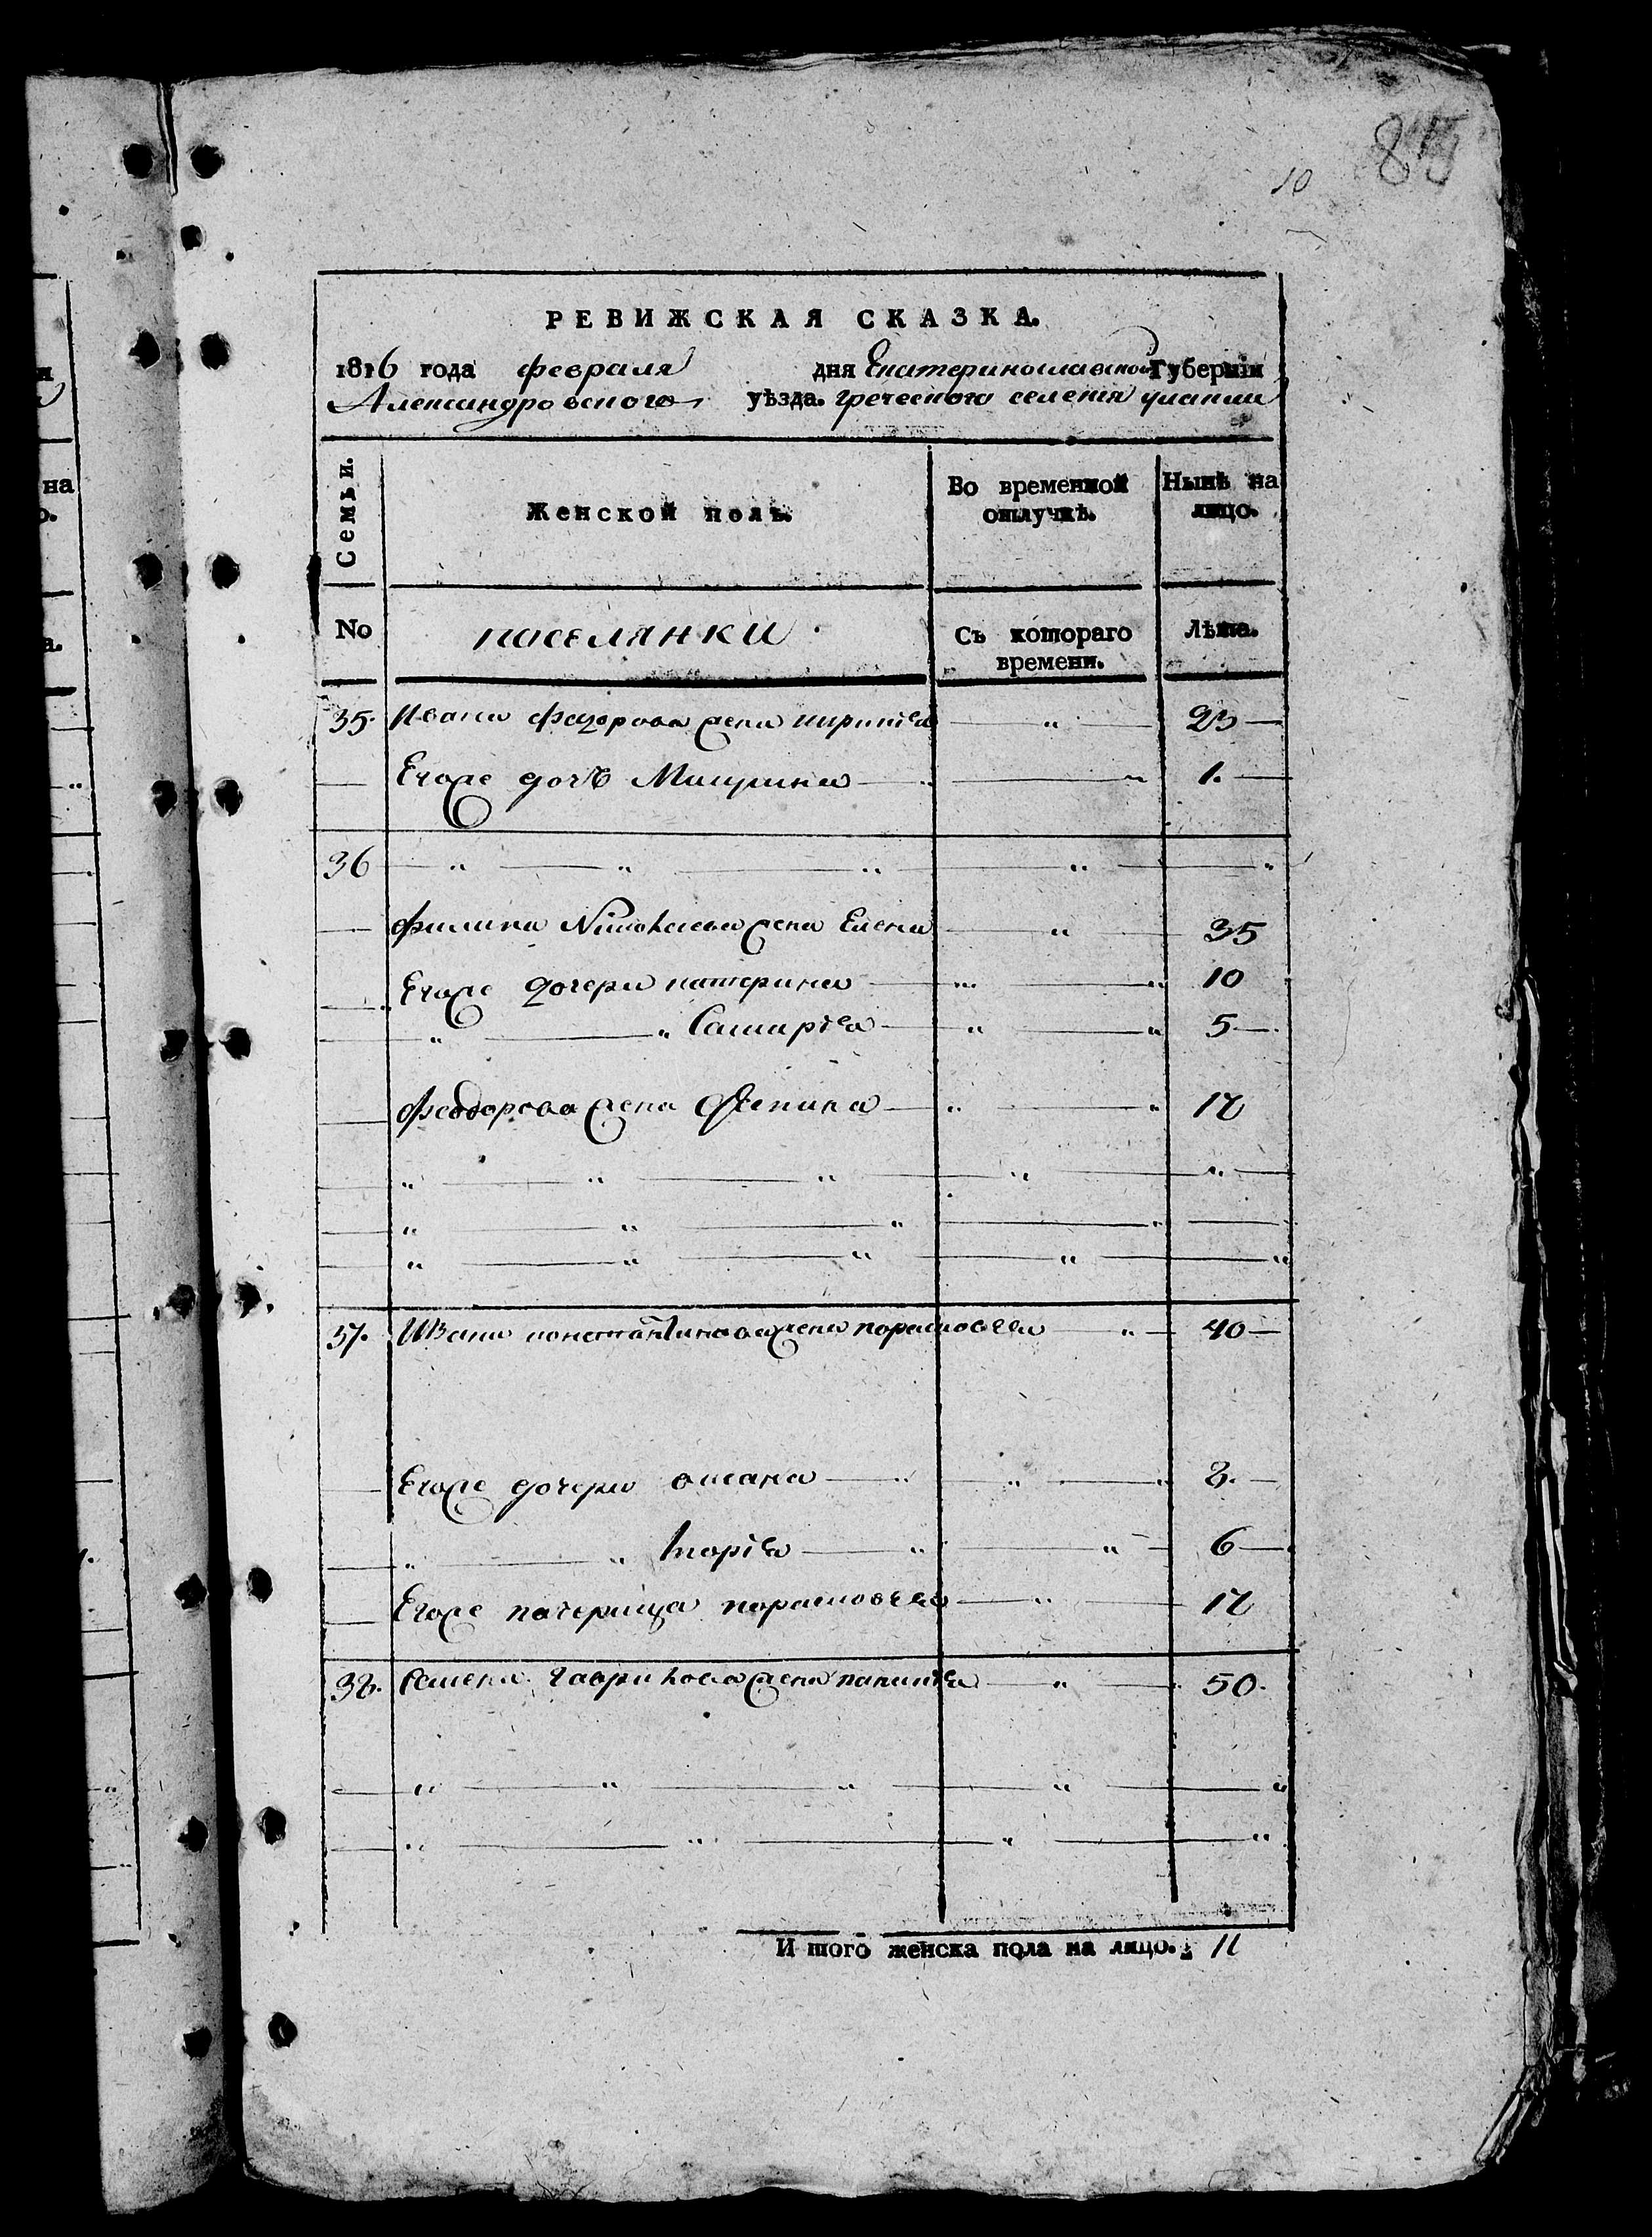 10
РЕВИЖСКАЯ СКАЗКА.
1816 года февраля дня Екатеринославской Губерніи
Александровского уѣзда. греческого селенія улаклы
Семьи. Женской полъ. Во временной отлучкѣ. Нынѣ на лицо.
No поселянки Съ котораго времени. Лѣта.
35. Ивана федорова жена киріакіа " 23
Егоже дочь " " 1.
36 " " " " "
филипа жена Елена " 35
Егоже дочери катерина " " 10
" " " " 5
феодорова жена " " 17
" " " " "
" " " "
" " " " "
37. Ивана константинова жена парасковѣа " 40
Егоже дочери оксана " " " 8.
" " " " 6
Егоже пачерица парасковѣа " 17
38. Семена гаврилова жена " 50.
" " " " "
" " " "
И того женска пола на лицо. 11
на